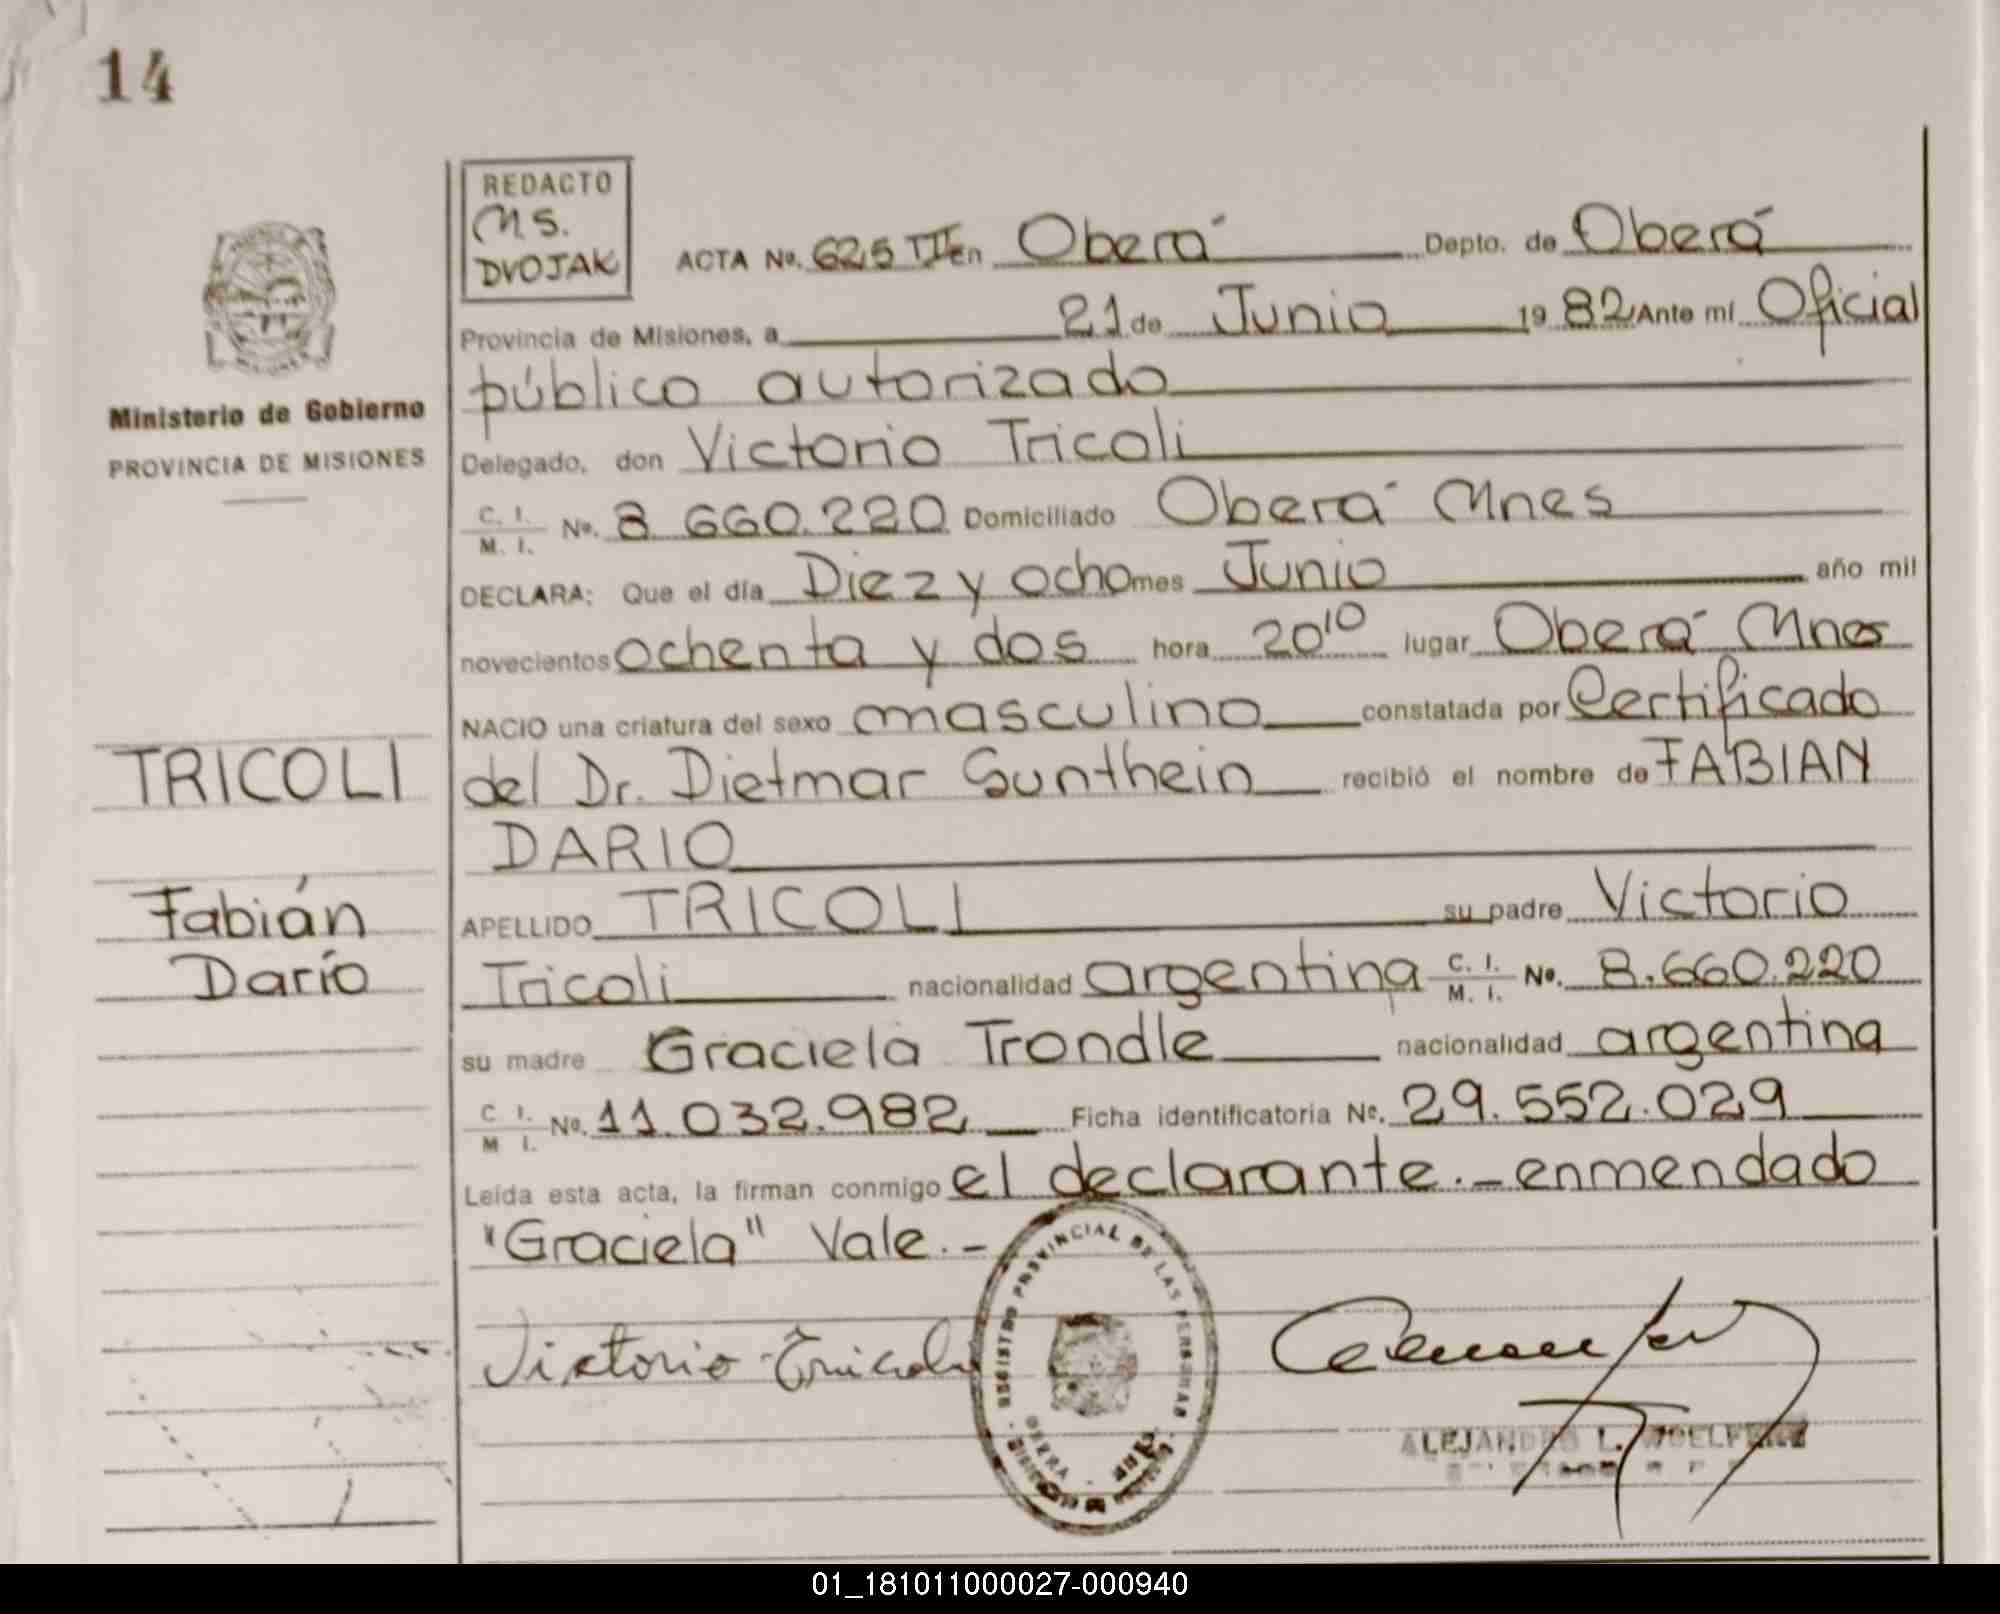 14
REDACTO
MS.
DVOJAK
ACTA No. 625 TII en Oberá Depto. de Oberá
Provincia de Misiones, a 21 de Junio 1982 Ante mí Oficial
público autorizado
Ministerio de Gobierno
PROVINCIA DE MISIONES
Delegado, don Victorio Tricoli
C. I. / M. I. No. 8 660.220 Domiciliado Oberá Mnes
DECLARA: Que el día Diez y ocho mes Junio año mil
novecientos ochenta y dos hora 20¹⁰ lugar Oberá Mnes
NACIO una criatura del sexo masculino constatada por Certificado
TRICOLI
del Dr. Dietmar Sunthein recibió el nombre de FABIAN
DARIO
Fabián
APELLIDO TRICOLI su padre Victorio
Darío
Tricoli nacionalidad argentina C. I. / M. I. No. 8.660.220
su madre Graciela Trondle nacionalidad argentina
C I. / M I. No. 11.032.982 Ficha identificatoria No. 29.552.029
Leída esta acta, la firman conmigo el declarante.- enmendado
"Graciela" Vale.-
Victorio Tricoli
REGISTRO PROVINCIAL DE LAS PERSONAS
OBERA
ALEJANDRO L.
01_181011000027-000940